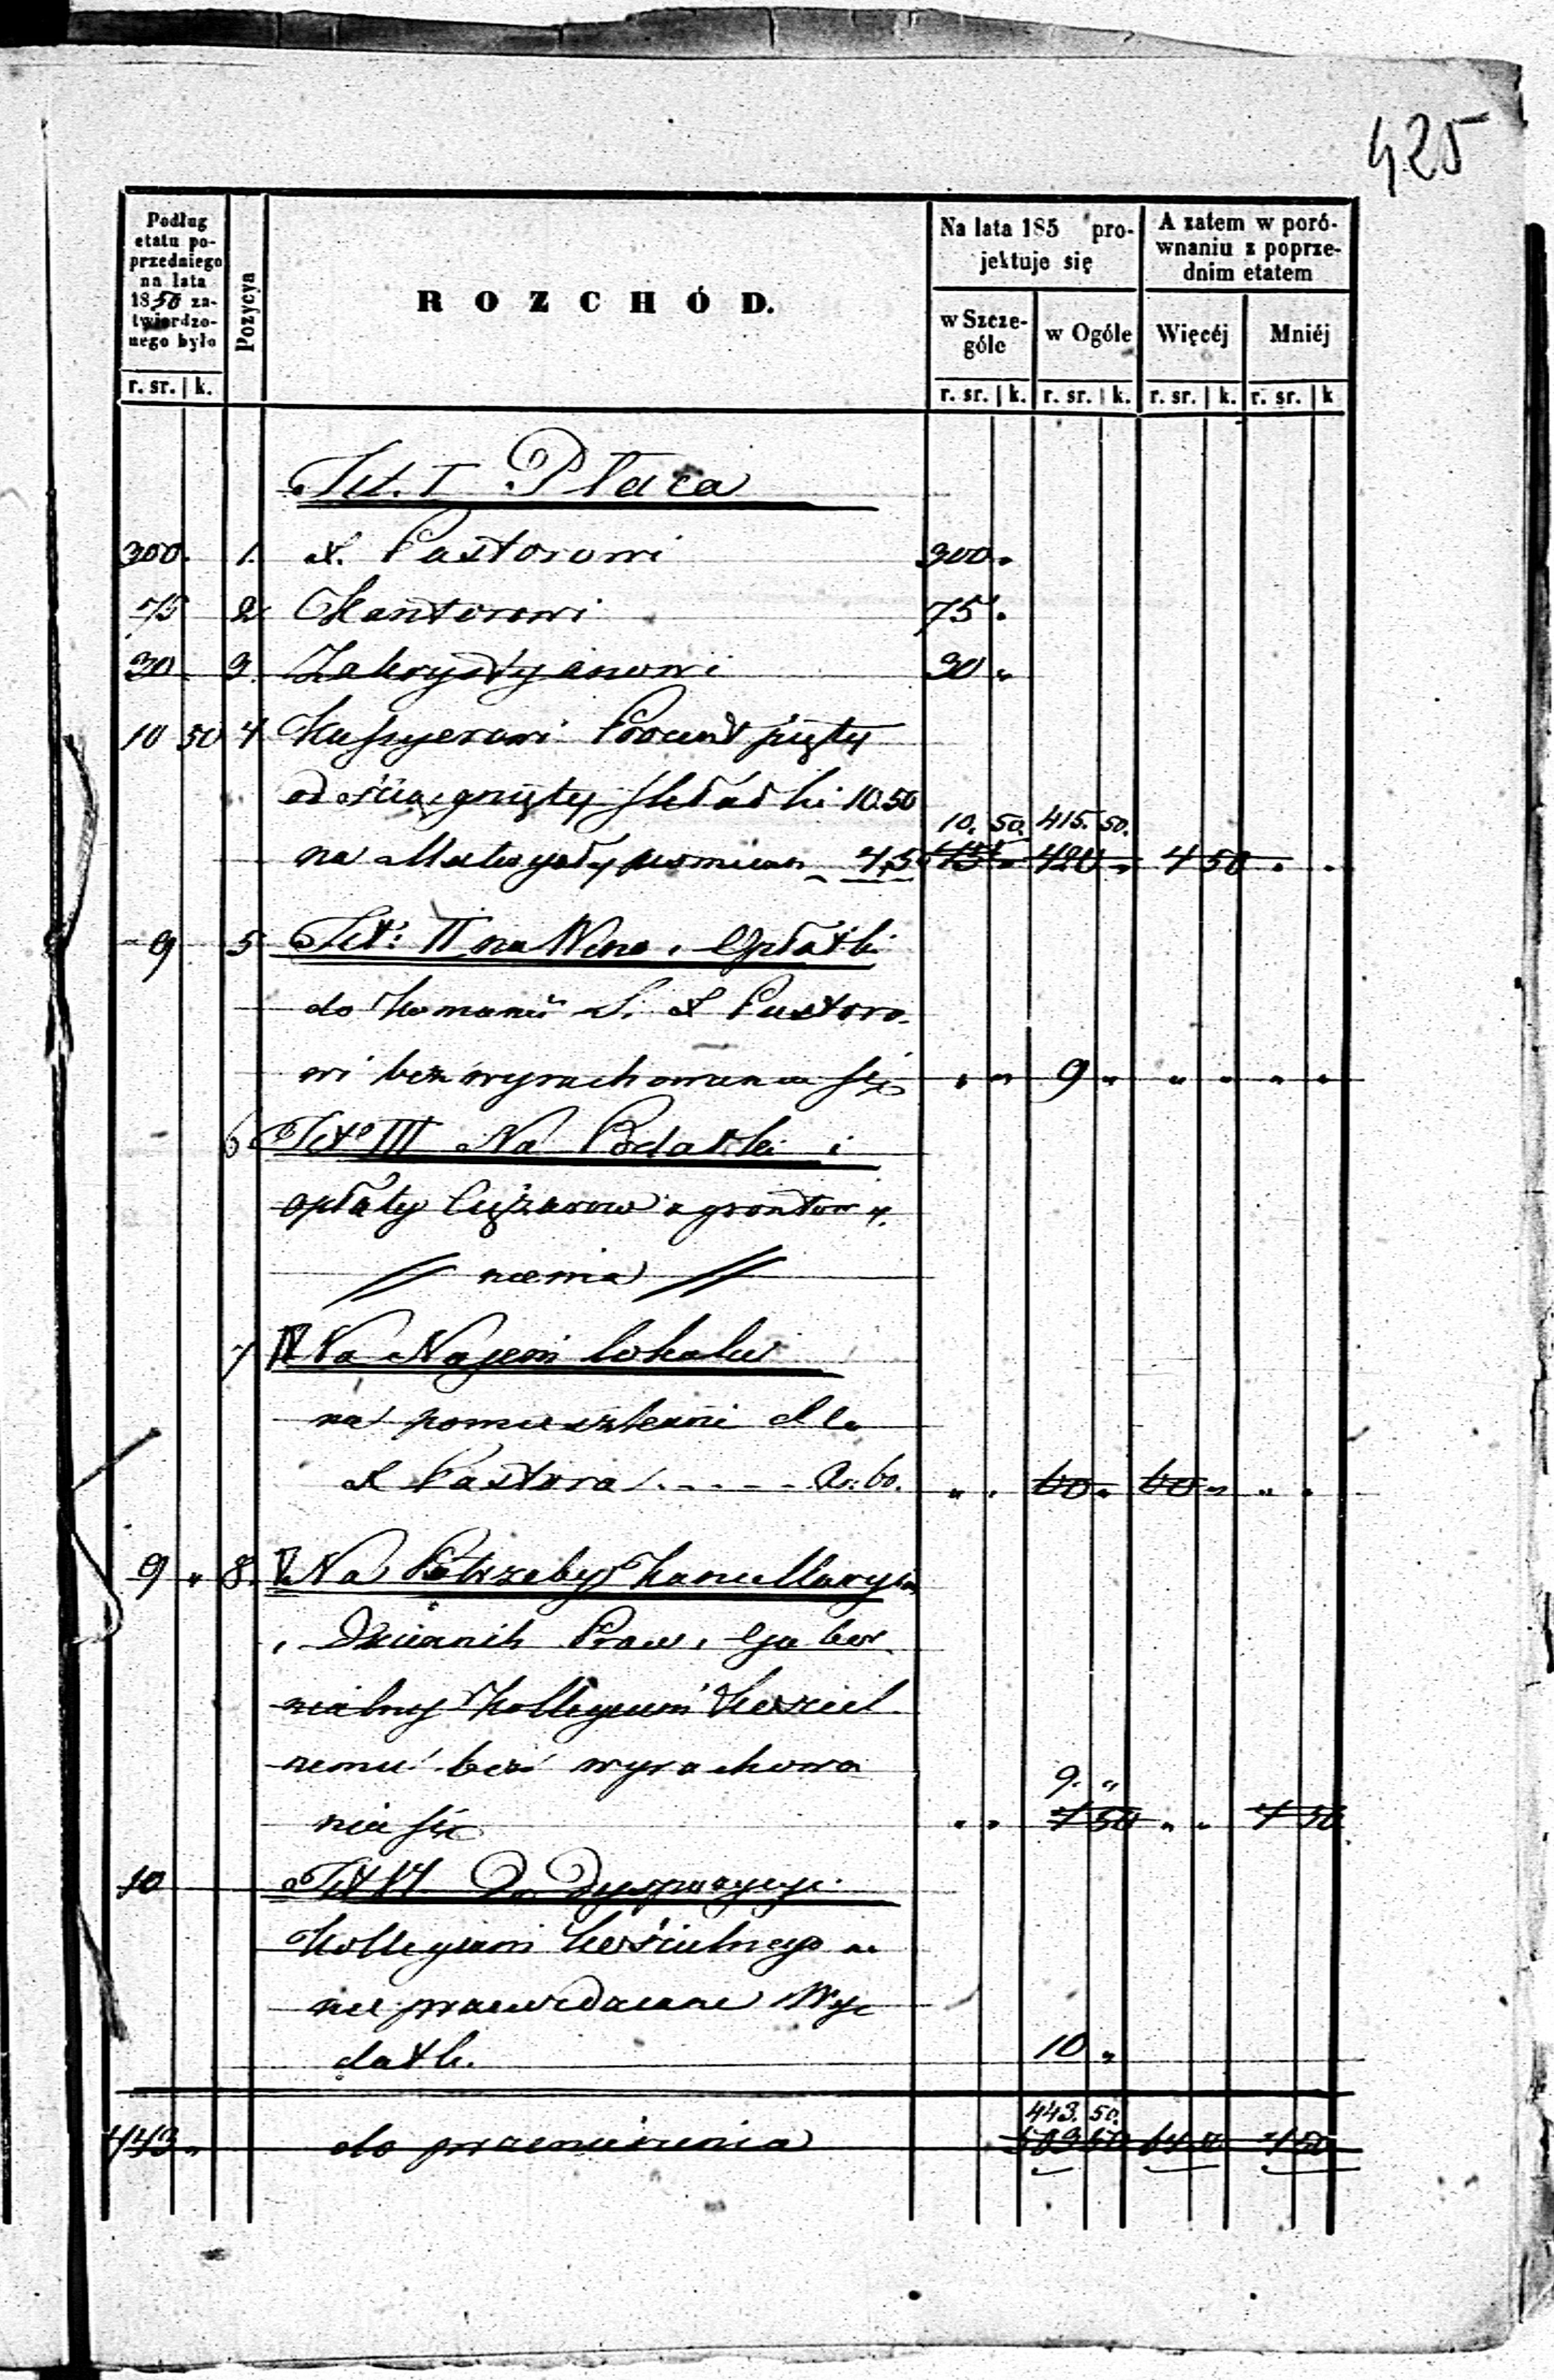 425
Podług etatu poprzedniego na lata 1856 zatwierdzonego było
Pozycya
R O Z C H Ó D.
Na lata 185 projektuje się
A zatem w porównaniu z poprzednim etatem
w Szczególe
w Ogóle
Więcéj
Mniéj
r. sr. | k.
r. sr. | k. r. sr. | k. r. sr. | k. r. sr. | k
Tit. I Płaca
300. 1. X. Pastorowi 300 "
75 2. Kantorowi 75 "
30. 3. Zakrystyanowi 30 "
10 50 4 Kassyerowi Procent piąty
od ściągnięty składki 10.50
10. 50. 415. 50.
na Materyały 4,5 15 " 420 " 4 50 " "
9 5 Tit: II na Wino i Opłatki
do Komunii S. X Pastoro-
wi bez wyrachowania się " " 9 " " " " "
6 Tit. III Na Podatki i
opłaty Ciężarow z grontow
// niema //
7 IV Na Najem lokalu
na pomieszkanie dla
X Pastora . - - - - Rs. 60. " " 60 " 60 " " "
9 " 8. V. Na Potrzeby Kancellaryi
i Dziennik Praw i Guber
nialny Kollegium Kościel
nemu bez wyrachowa
9. "
nia się " " 4 50 " " 4 50
10 Tit VI Do Dyspozycyi
Kollegium Kościelnego na
nie przewidziane Wy
datk. 10 "
443. 50.
443 " do przeniesienia 509 50 64 4 50